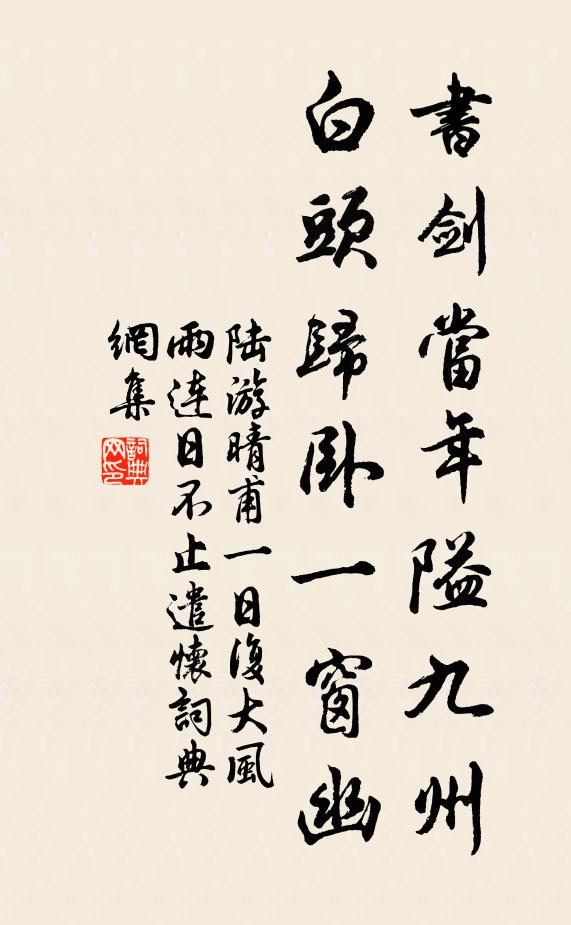 書劍當年隘九州
白頭歸卧一窗幽
陆游晴甫一日復大風
雨连日不止遣懷詞典
網集
詞典网印